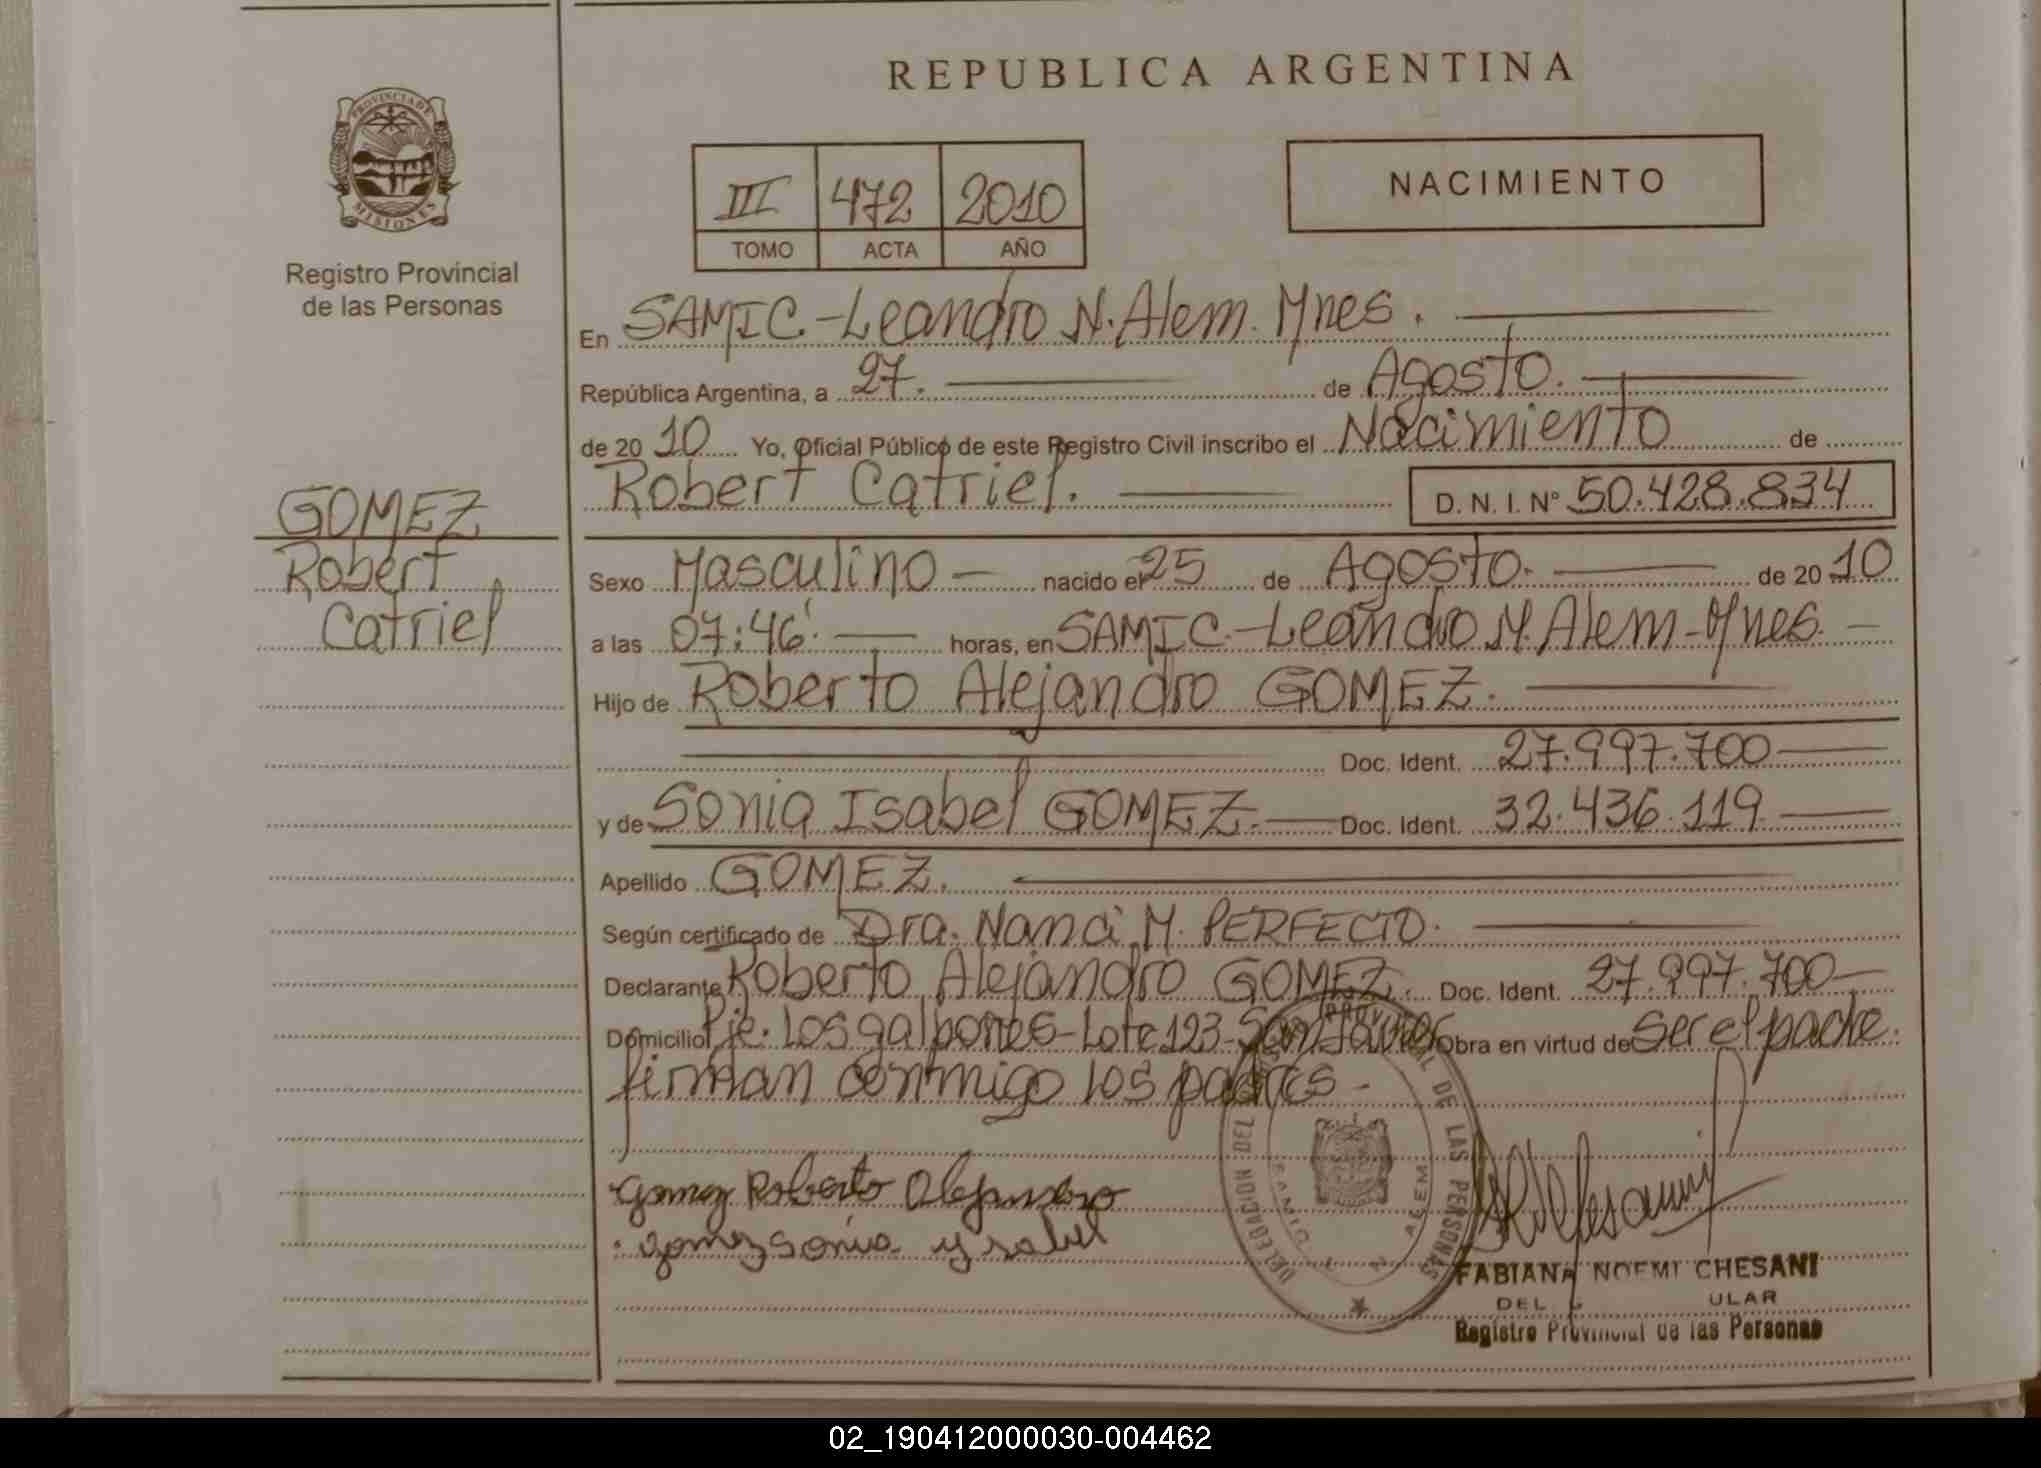 REPUBLICA ARGENTINA
PROVINCIA DE
MISIONES
Registro Provincial
de las Personas
III 472 2010
TOMO ACTA AÑO
NACIMIENTO
En SAMIC.-Leandro N. Alem. Mnes.
República Argentina, a 27. de Agosto.
de 20 10 Yo, Oficial Público de este Registro Civil inscribo el Nacimiento de
Robert Catriel. D. N. I. N° 50.428.834
GOMEZ
Robert
Catriel
Sexo Masculino nacido el 25 de Agosto. de 20 10
a las 07:46' horas, en SAMIC.-Leandro N. Alem-Mnes.
Hijo de Roberto Alejandro GOMEZ.
Doc. Ident. 27.997.700
y de Sonia Isabel GOMEZ. Doc. Ident. 32.436.119
Apellido GOMEZ.
Según certificado de Dra. Nanci M. PERFECTO.
Declarante Roberto Alejandro GOMEZ. Doc. Ident. 27.997.700
Domicilio Pje. Los galpones-Lote 123-San Javier Obra en virtud de ser el padre.
firman conmigo los padres-
Gomez Roberto Alejandro
gomez sonia ysabel
DELEGACION DEL PROVINCIAL DE LAS PERSONAS
ALEM
FABIANA NOEMI CHESANI
Registro Provincial de las Personas
02_190412000030-004462